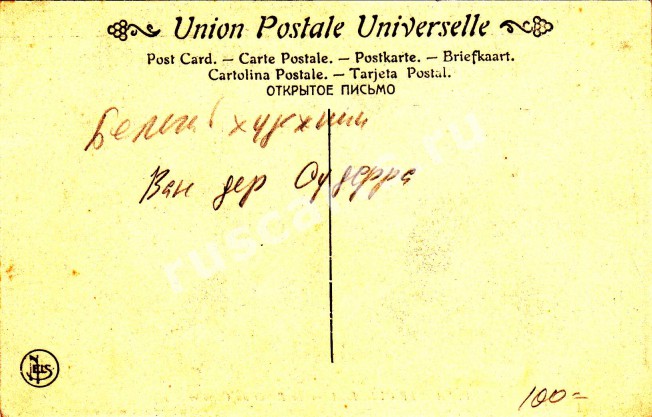 Union Postale Universelle
Post Card. — Carte Postale. — Postkarte. — Briefkaart.
Cartolina Postale. — Tarjeta Postal.
ОТКРЫТОЕ ПИСЬМО
Ван дер Оудерра
NELS
100=
ruscar.ru